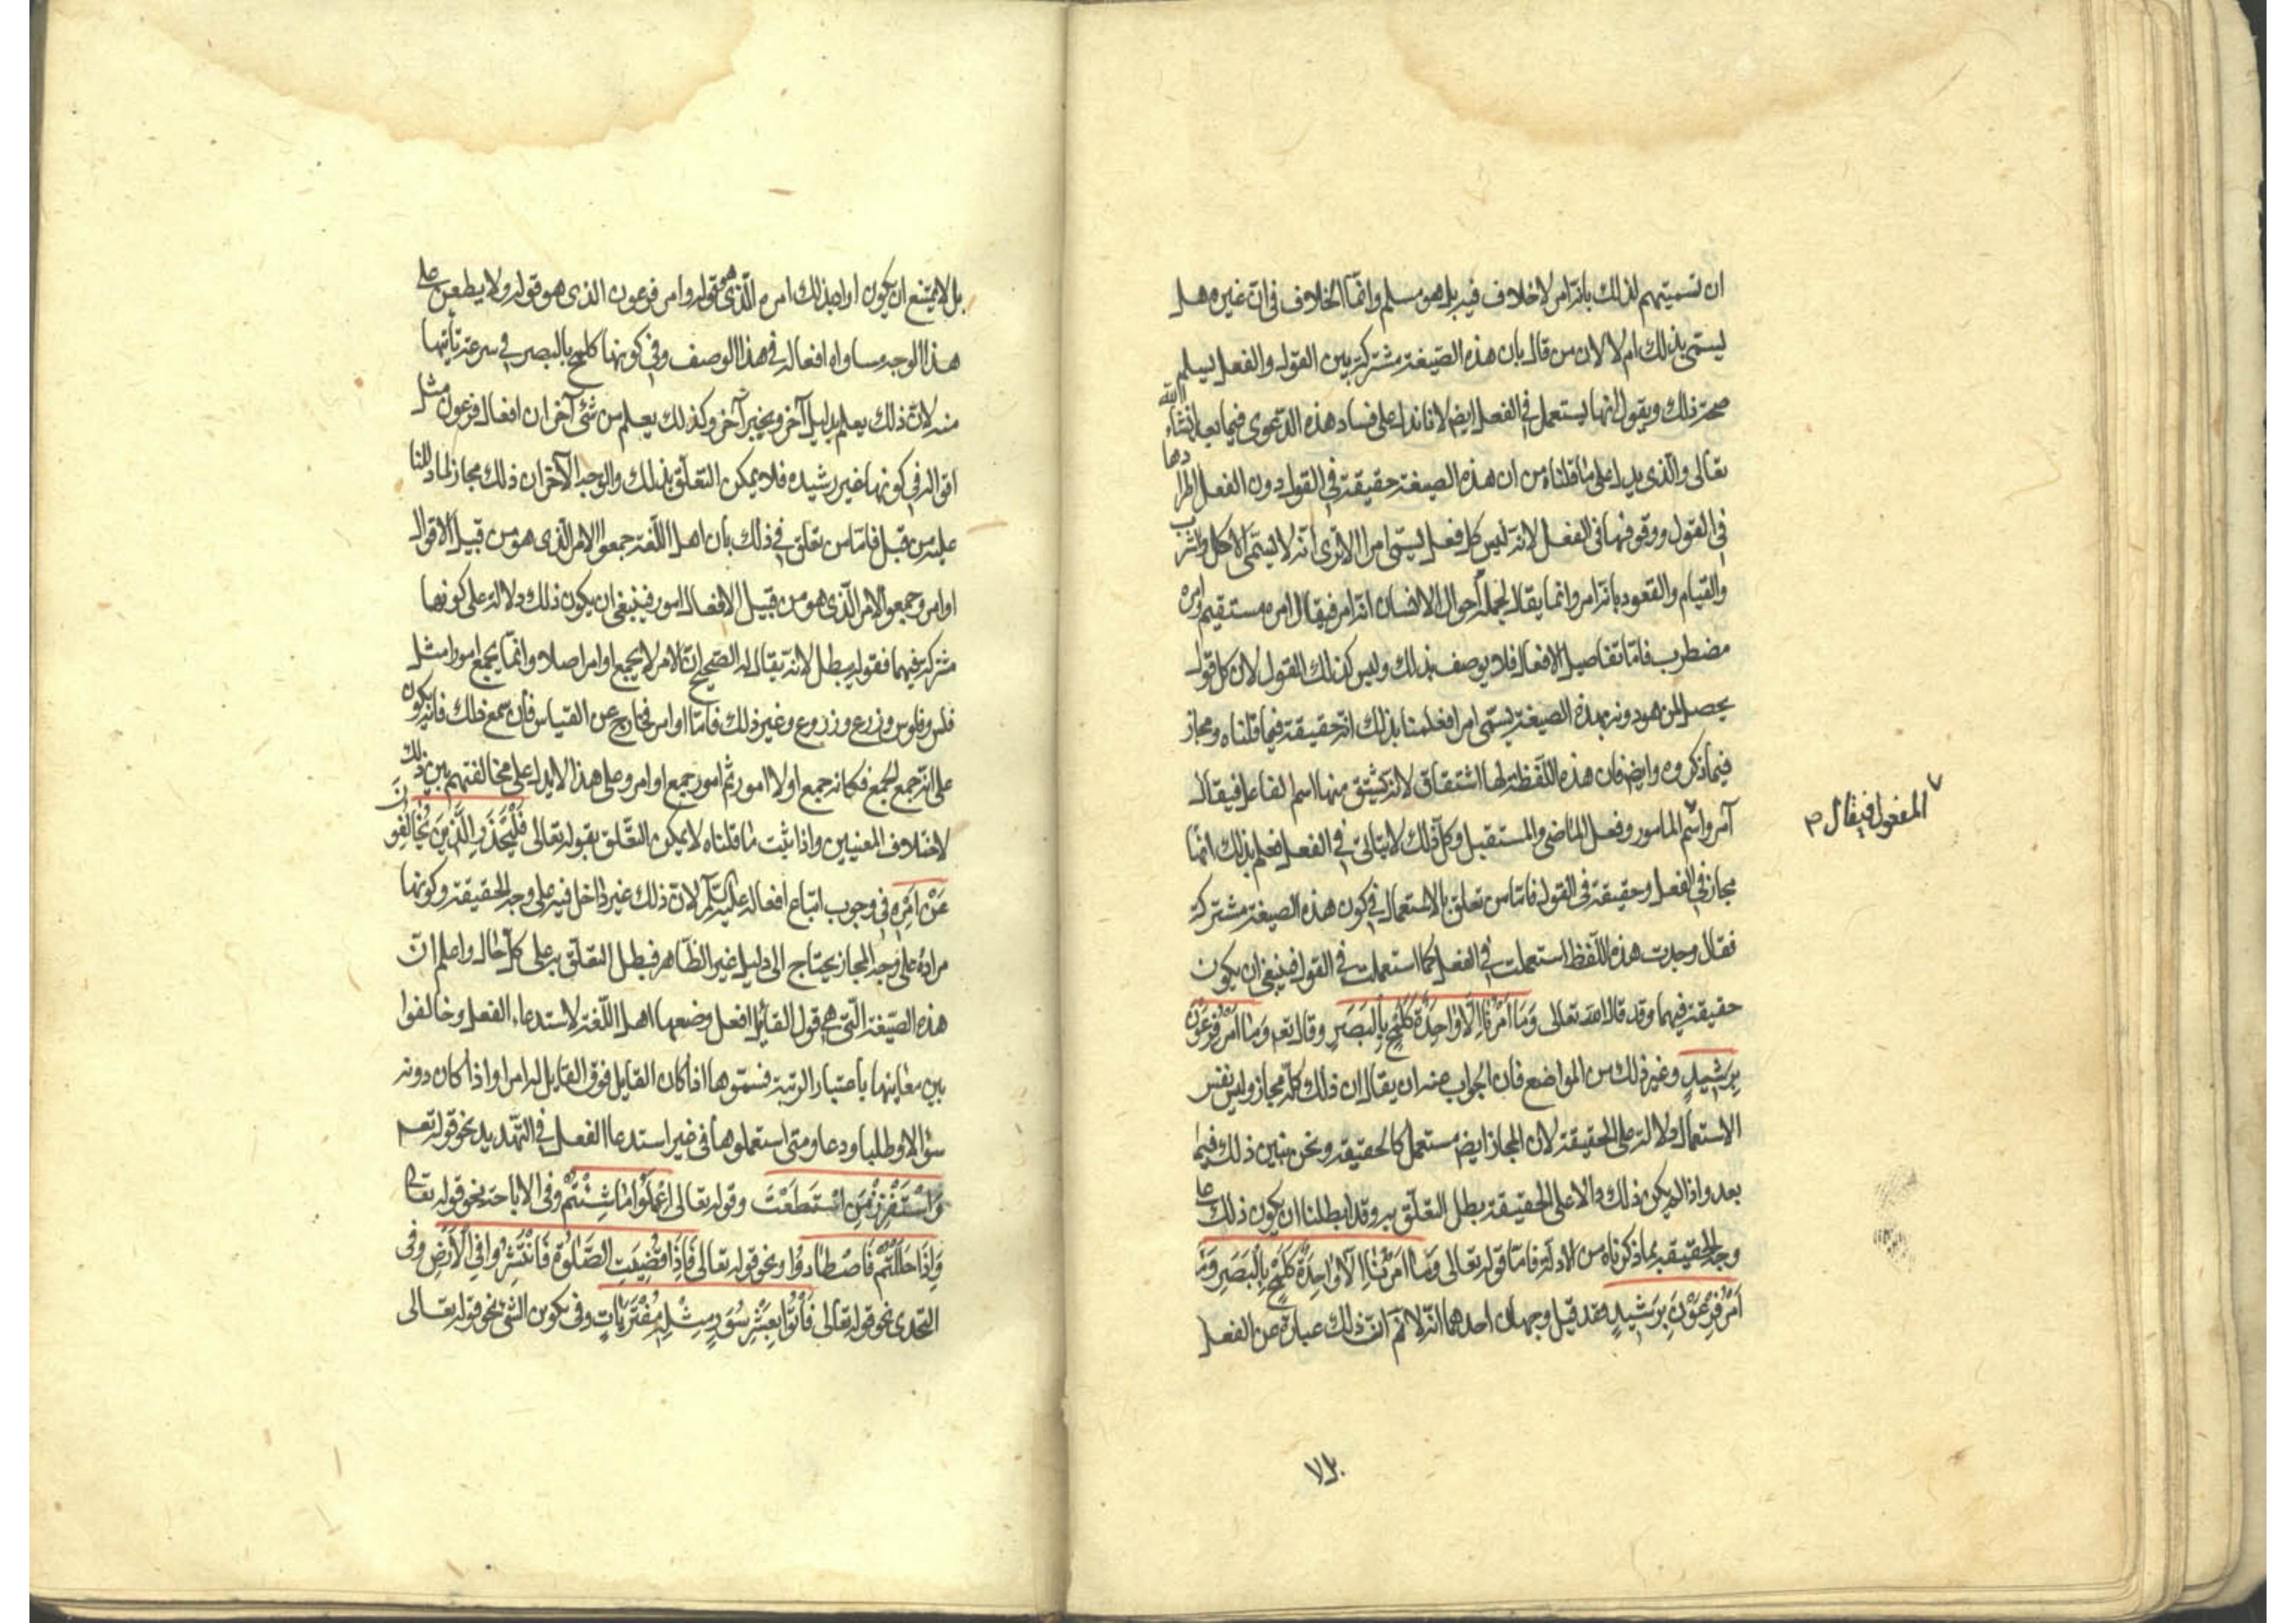 ان تسميتهم لذلك بانه امر لا خلاف فيه بل هو مسلم وانما الخلاف فى ان غيره هل
يسمى بذلك ام لا لان من قال بان هذه الصيغة مشتركة بين القول والفعل يسلم
صحة ذلك ويقول انها يستعمل فى الفعل ايضا لانا ندل على فساد هذه الدعوى فيما بعد انشاء الله
تعالى والذى يدل على ما قلناه من ان هذه الصيغة حقيقة فى القول دون الفعل اطرادها
فى القول ووقوفها فى الفعل لانه ليس كل فعل يسمى امرا الا ترى انه لا يسمى الاكل والشرب
والقيام والقعود بانه امر وانما يقال لجملة احوال الانسان انه امر فيقال امره مستقيم وامره
مضطرب فاما تفاصيل الافعال فلا يوصف بذلك وليس كذلك القول لان كل قول
يحصل لمن هو دونه بهذه الصيغة يسمى امرا فعلمنا بذلك انه حقيقة فيما قلناه ومجاز
فيما ذكروه وايضا فان هذه اللفظة لها اشتقاق لانه يشتق منها اسم لفاعل فيقال
آمر واسم المامور وفعل الماضى والمستقبل وكل ذلك لا يتاتى فى الفعل فعلم بذلك انها
المفعول فيقال
مجاز فى الفعل وحقيقة فى القول فاما من تعلق بالاستعمال فى كون هذه الصيغة مشتركة
فقال وجدت هذه اللفظ استعملت فى الفعل كما استعملت فى القول فينبغى ان يكون
حقيقة فيهما وقد قال الله تعالى وَمَا اَمْرُنَا اِلَّا وَاحِدَةٌ كَلَمْحٍ بِالْبَصَرِ وقال تعم وَمَا اَمْرُ فِرْعَوْنَ
بِرَشِيدٍ وغير ذلك من المواضع فان الجواب عنه ان يقال ان ذلك كله مجاز وليس نفس
الاستعمال دلالة على الحقيقة لان المجاز ايضا مستعمل كالحقيقة ونحن نبين ذلك فيما
بعد واذا لم يكن ذلك دالا على الحقيقة بطل التعلق به وقد ابطلنا ان يكون ذلك على
وجه الحقيقة بما ذكرناه من الادلة فاما قوله تعالى وَمَا اَمْرُنَا اِلَّا وَاحِدَةٌ كَلَمْحٍ بِالْبَصَرِ وَمَا
اَمْرُ فِرْعَوْنَ بِرَشِيدٍ فقد قيل وجهان احدهما انه لا نم ان ذلك عبارة عن الفعل
بل لا يمتنع ان يكون اراد بذلك امره الذى هو قوله وامر فرعون الذى هو قوله ولا يطعن على
هذا الوجه مساواه افعاله فى هذا الوصف وفى كونها كلمح بالبصر فى سرعة تأتيها
منه لان ذلك يعلم بدليل آخر وبخبر آخر وكذلك يعلم من شئ آخر ان افعال فرعون مثل
اقواله فى كونها غير رشيده فلا يمكن التعلق بذلك والوجه الآخر ان ذلك مجاز لما دللنا
عليه من قبل فاما من تعلق فى ذلك بان اهل اللغة جمعوا الامر الذى هو من قبيل الاقوال
اوامر وجمعوا الامر الذى هو من قبيل الافعال امور فينبغى ان يكون ذلك دلالة على كونها
مشتركة فيهما فقوله يبطل لانه يقال له الصحيح ان الامر لا يجمع اوامر اصلا وانما يجمع امورا مثل
فلس وفلوس وزرع وزروع وغير ذلك فاما اوامر فخارج عن القياس فان سمع ذلك فانه يكون
على انه جمع الجمع فكانه جمع اولا امور ثم امور جمع اوامر وعلى هذا لا يدل على مخالفتهم بين ذلك
لاختلاف المعنيين واذا ثبت ما قلناه لا يمكن التعلق بقوله تعالى فَلْيَحْذَرِ الَّذِينَ يُخَالِفُونَ
عَنْ اَمْرِهِ فى وجوب اتباع افعاله عليه السلم لان ذلك غير داخل فيه على وجه الحقيقة وكونها
مرادة على وجه المجاز يحتاج الى دليل غير الظاهر فبطل التعلق به على كل حال واعلم ان
هذه الصيغة التى هى قول القائل افعل وضعها اهل اللغة لاستدعاء الفعل وخالفوا
بين معانيها باعتبار الرتبة فسموها اذا كان القايل فوق القايل له امرا واذا كان دونه
سؤالا وطلبا ودعا ومتى استعملوها فى غير استدعا الفعل فى التهديد نحو قوله تعم
وَاسْتَفْزِزْ مَنِ اسْتَطَعْتَ وقوله تعالى اِعْمَلُوا مَا شِئْتُمْ وفى الاباحة نحو قوله تعالى
وَاِذَا حَلَلْتُمْ فَاصْطَادُوا ونحو قوله تعالى فَاِذَا قُضِيَتِ الصَّلٰوةُ فَانْتَشِرُوا فِى الْاَرْضِ وفى
التحدى نحو قوله تعالى فَأْتُوا بِعَشْرِ سُوَرٍ مِثْلِهِ مُفْتَرَيَاتٍ وفى تكوين الشئ نحو قوله تعالى